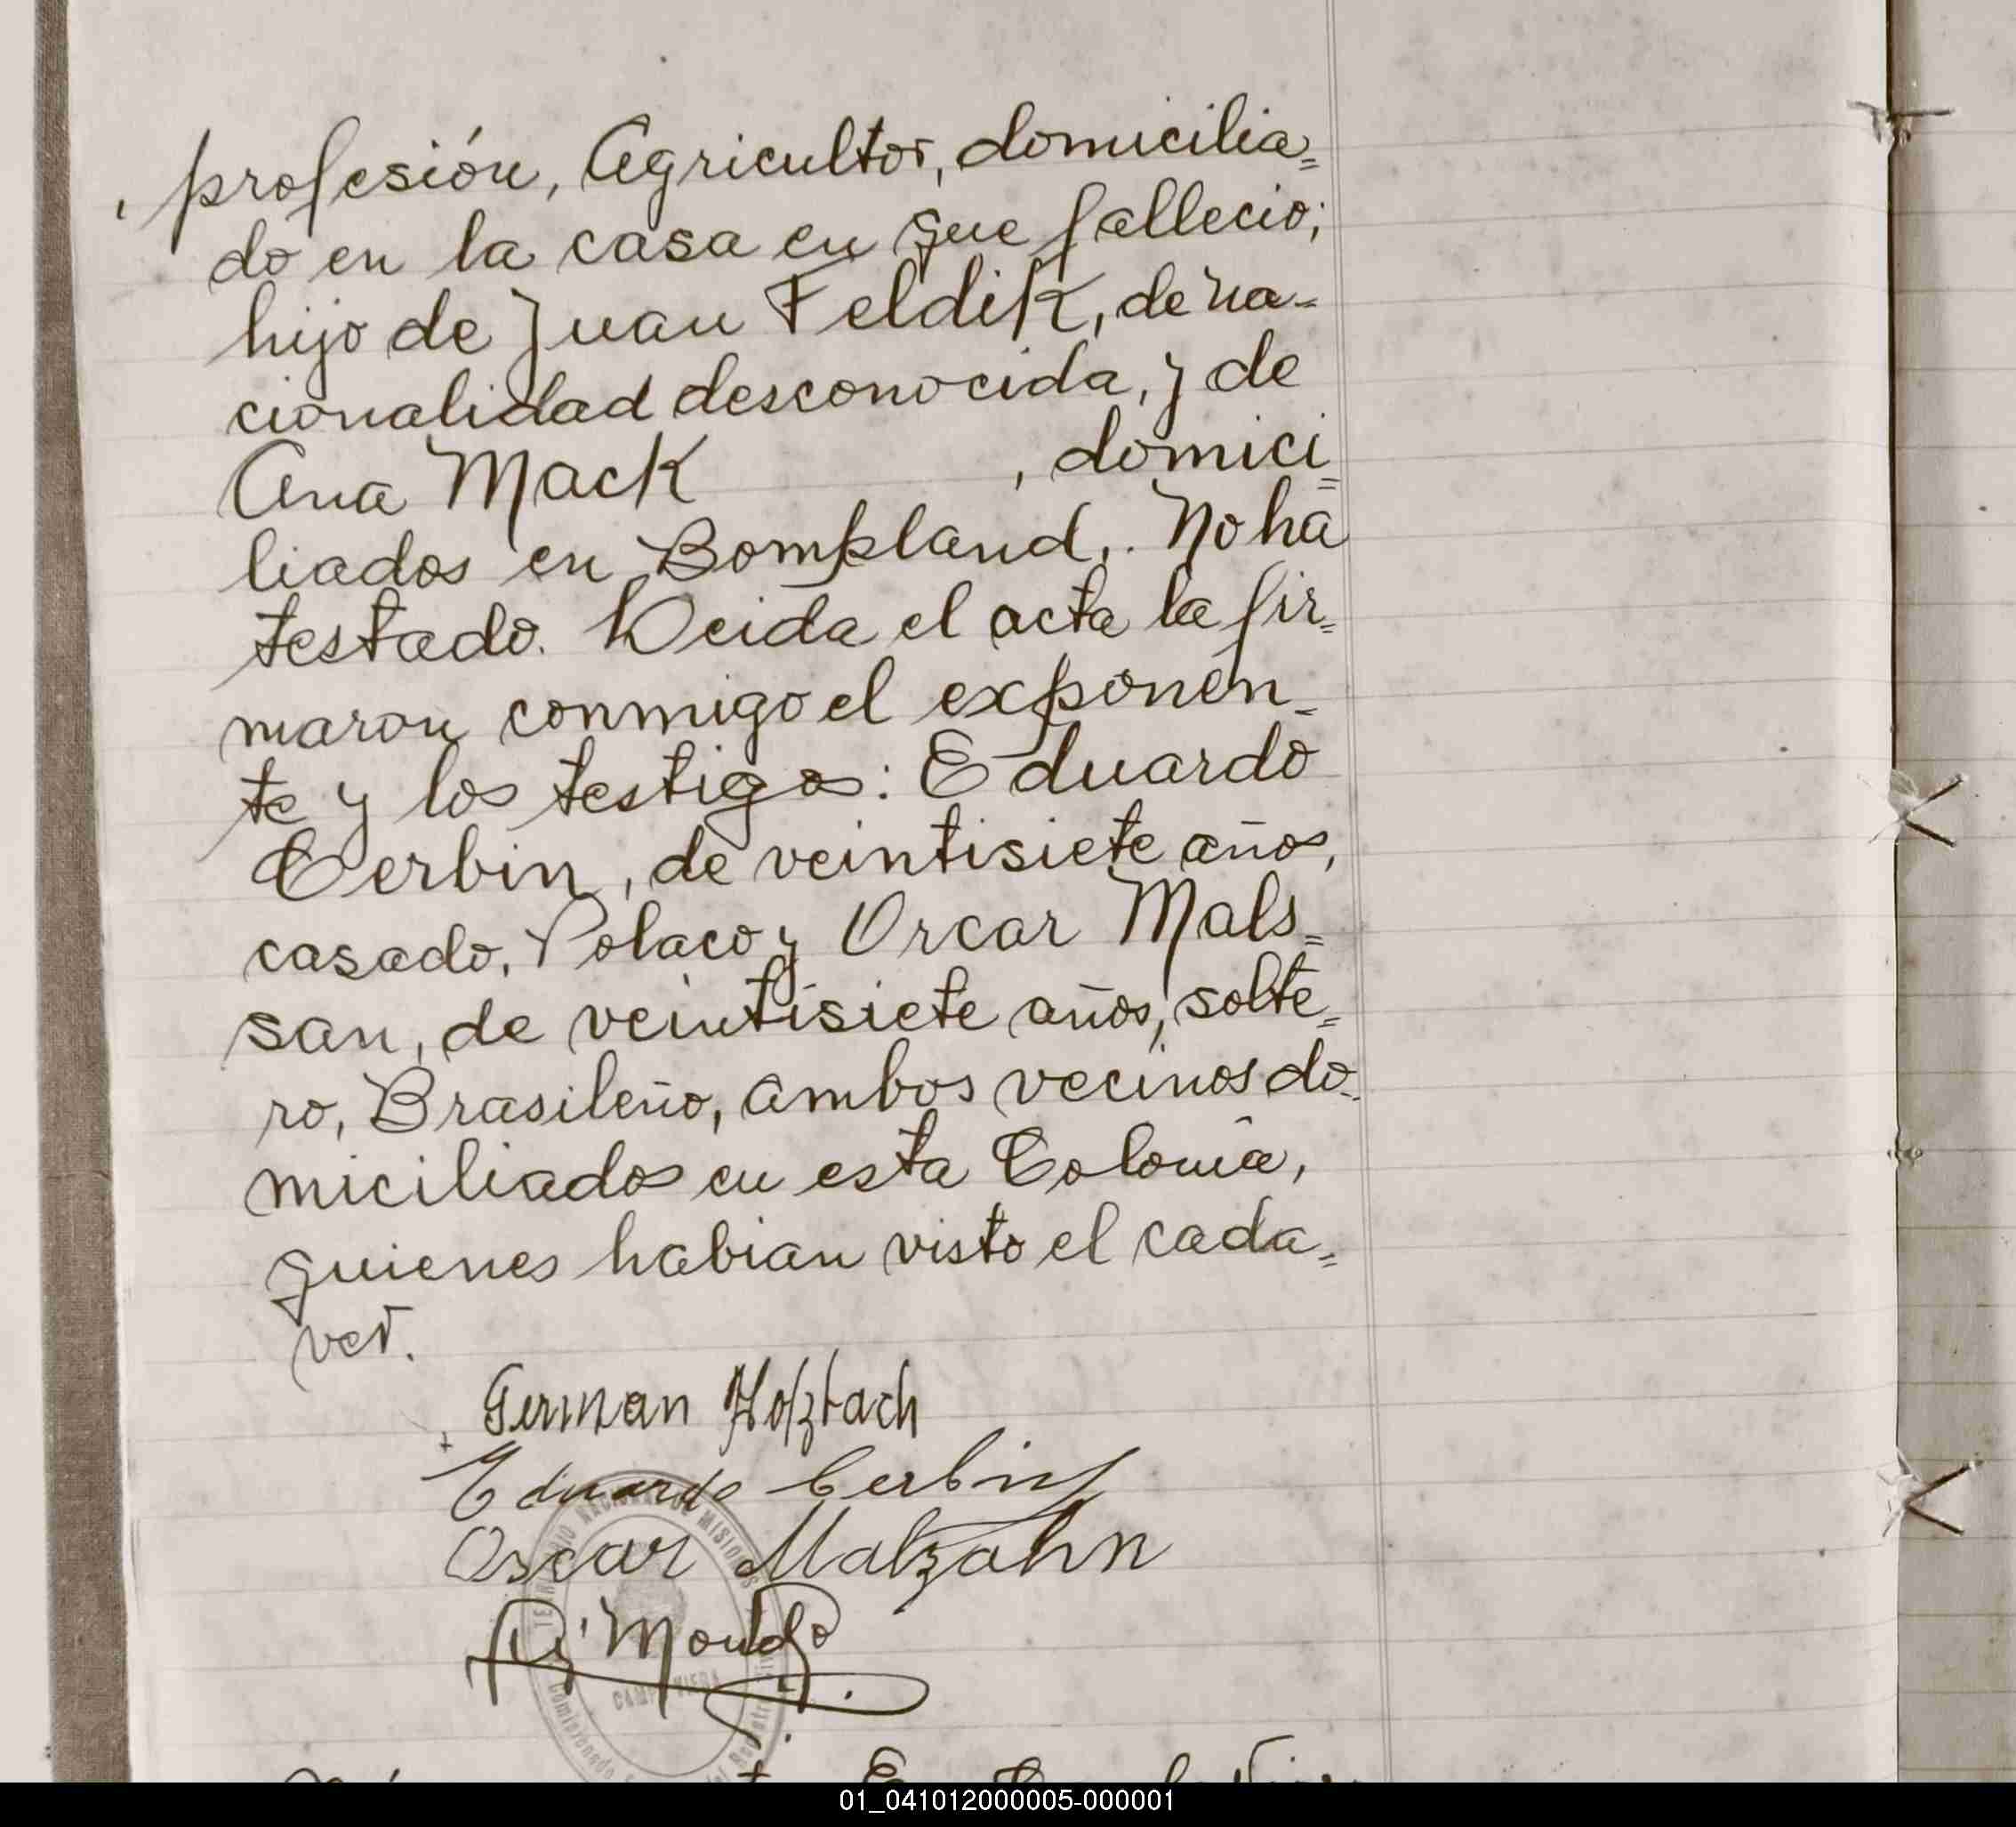 profesión, Agricultor, domicilia=
do en la casa en que fallecio;
hijo de Juan Feldik, de na-
cionalidad desconocida, y de
Ana Mack , domici=
liados en Bompland,. No ha
testado. Leida el acta la fir=
maron conmigo el exponen=
te y los testigos: Eduardo
Cerbin, de veintisiete años,
casado, Polaco y Orcar Mals=
san, de veintisiete años, solte=
ro, Brasileño, ambos vecinos do=
miciliados en esta Colonia,
quienes habian visto el cada=
ver.
German Holzbach
Eduardo Cerbin
Oscar Malzahn
NACIONAL DE MISIONES
CAMPO VIERA
Comisionado
01_041012000005-000001